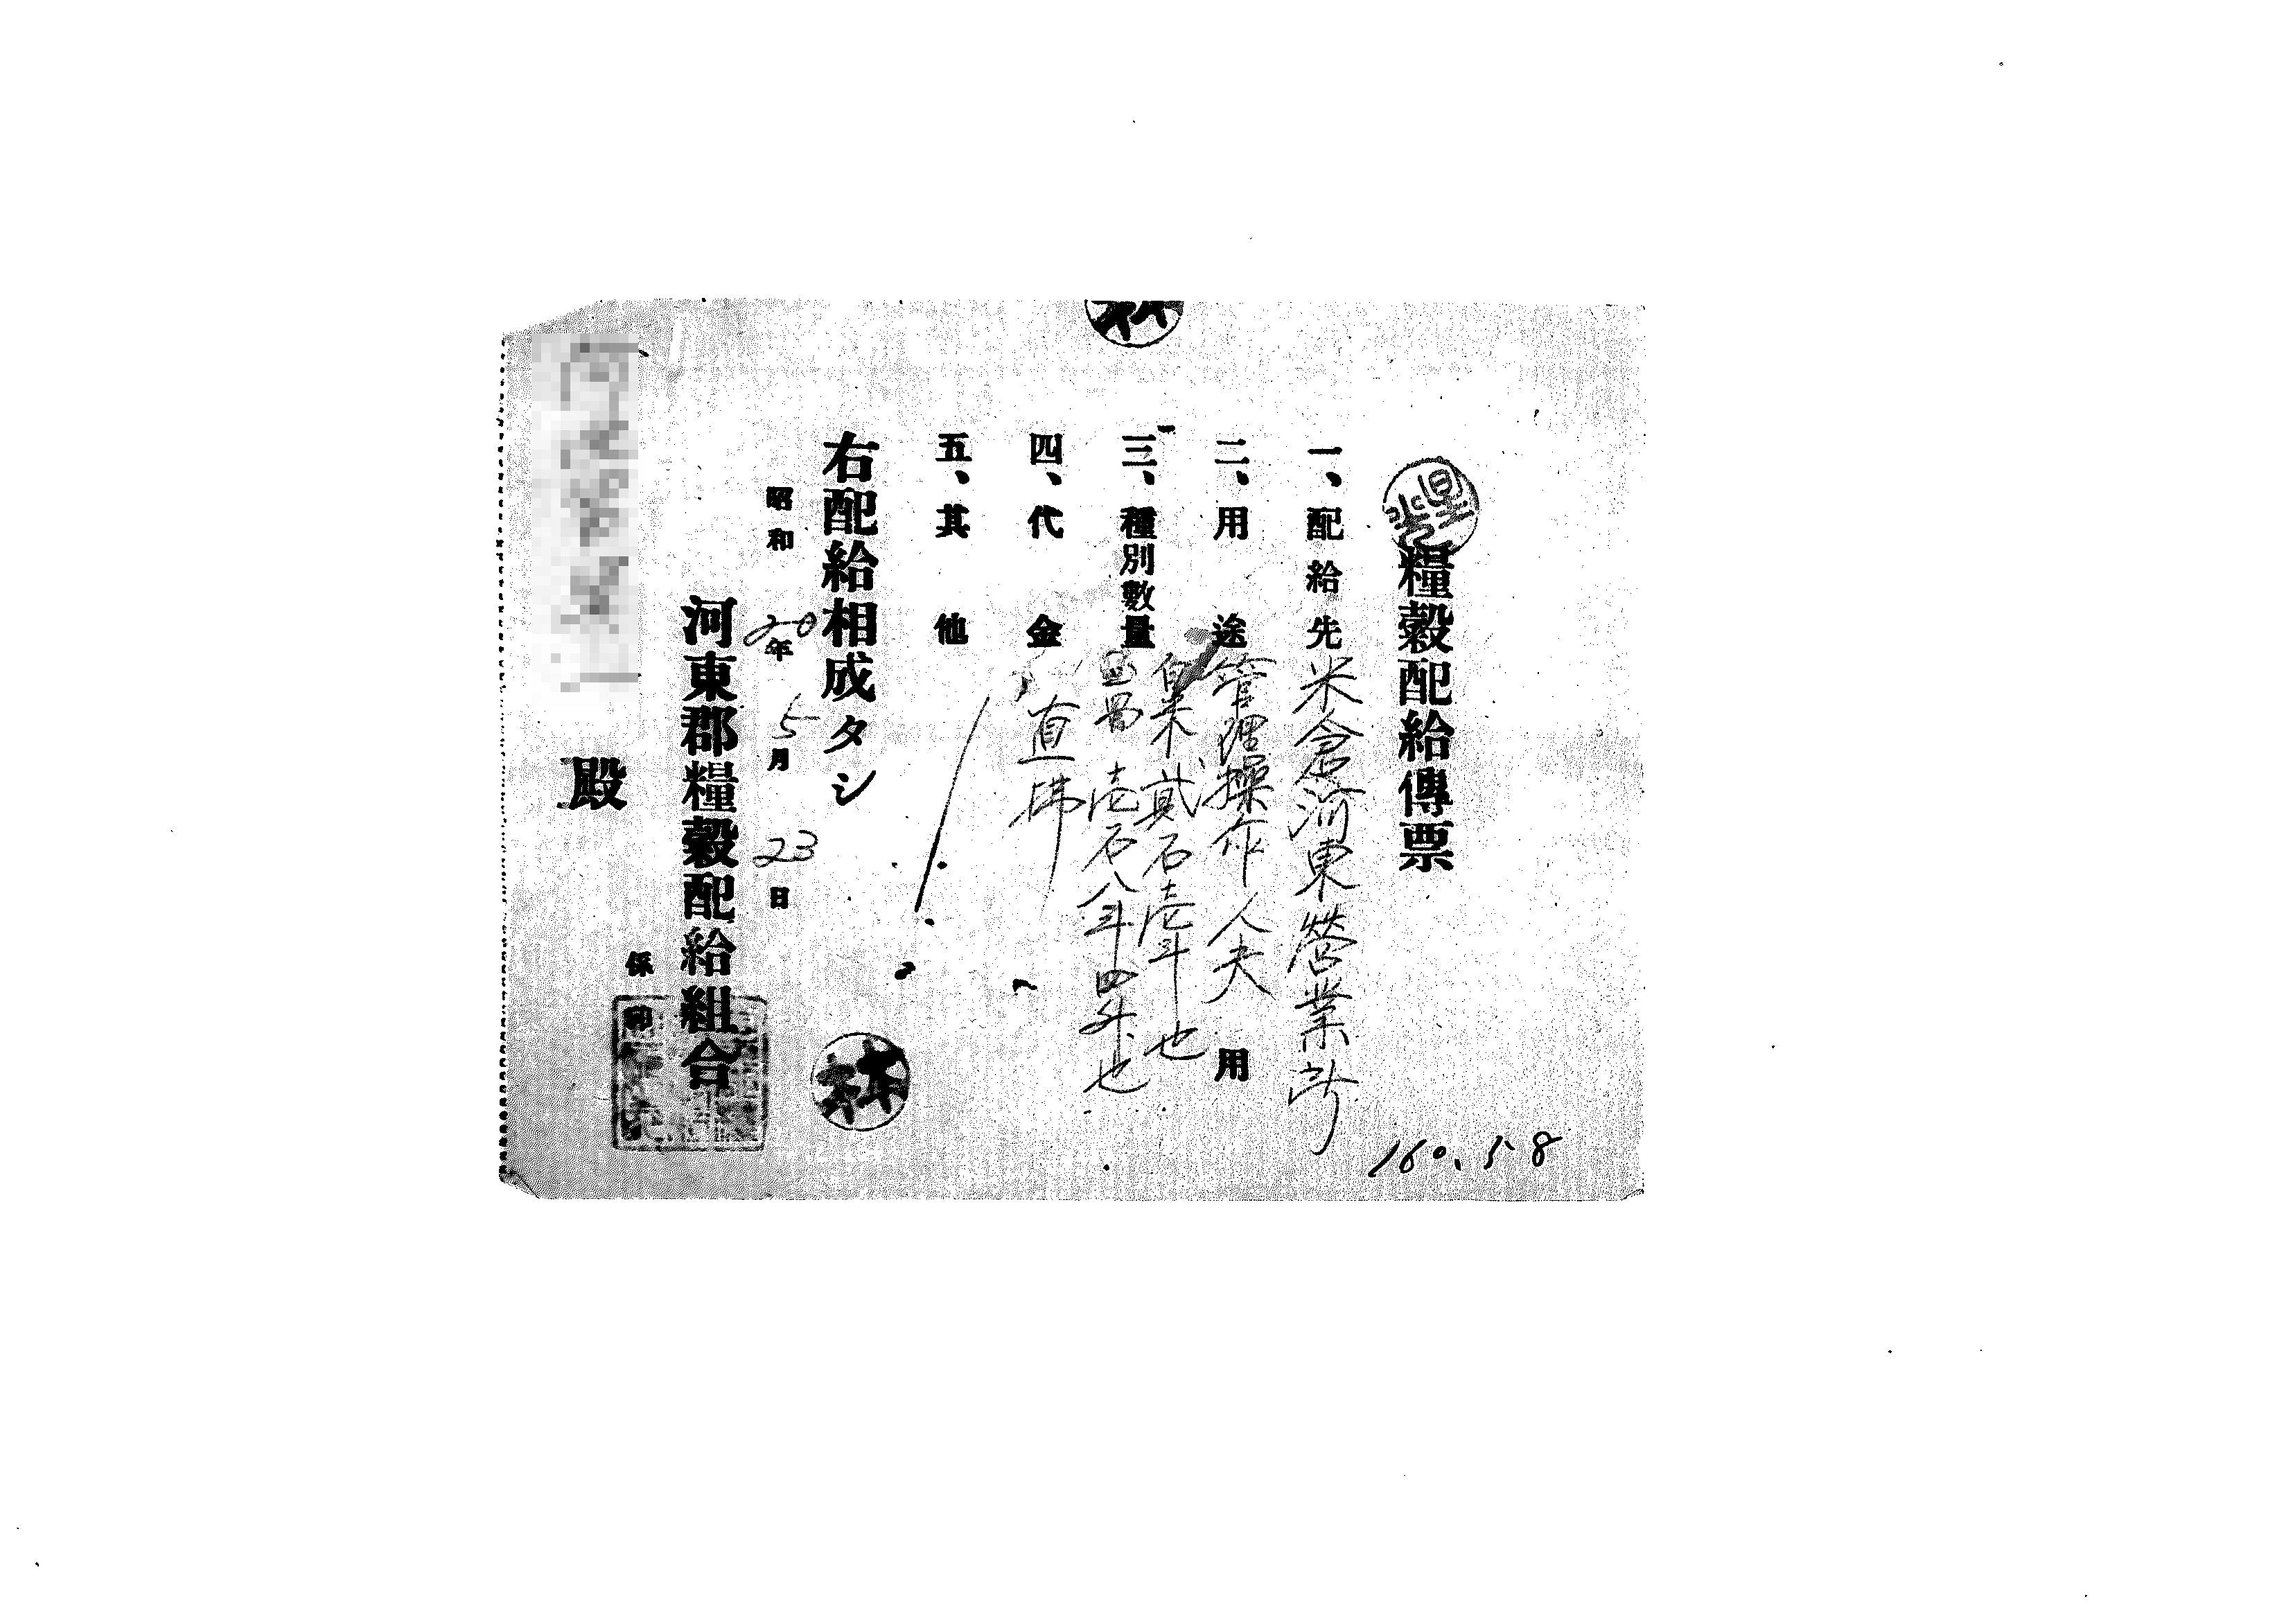 糧穀配給傳票
一、配給先 米倉河東營業所
二、用途 管理操作人夫用
三、種別數量 白米貳石壱斗也
壱石八斗四升也
四、代金 直拂
五、其他
右配給相成タシ
昭和20年5月23日
河東郡糧穀配給組合
係印
殿
林
林
160.58